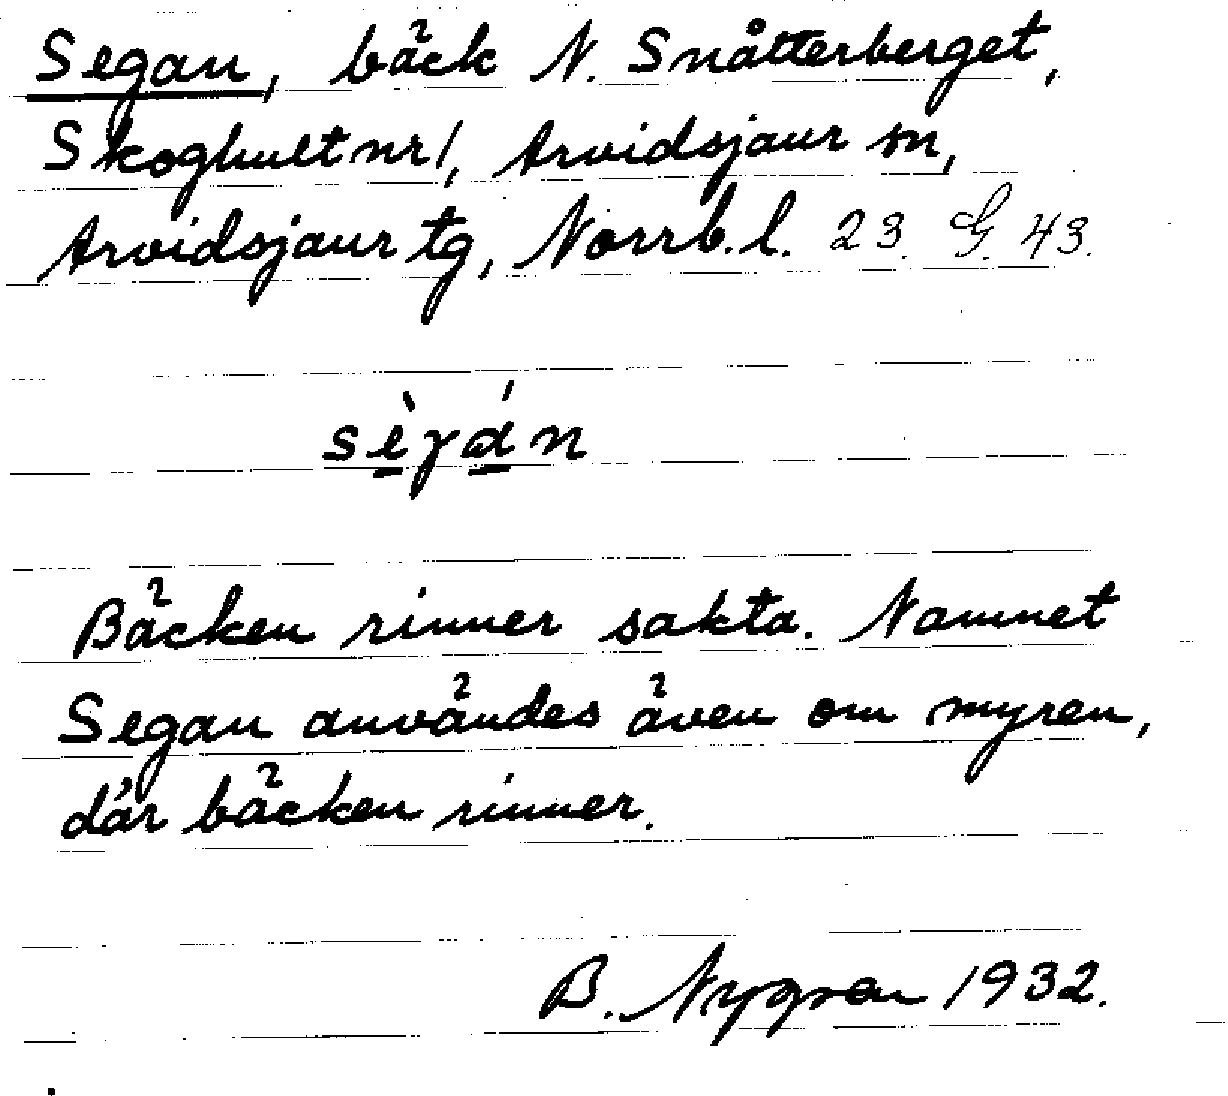 Segan, bäck N. Snåtterberget,
Skoghult nr 1, Arvidsjaur sn,
Arvidsjaur tg, Norrb. l. 23. G. 43.
sè̱γá̱n
Bäcken rinner sakta. Namnet
Segan användes även om myren,
där bäcken rinner.
B. Nygren 1932.